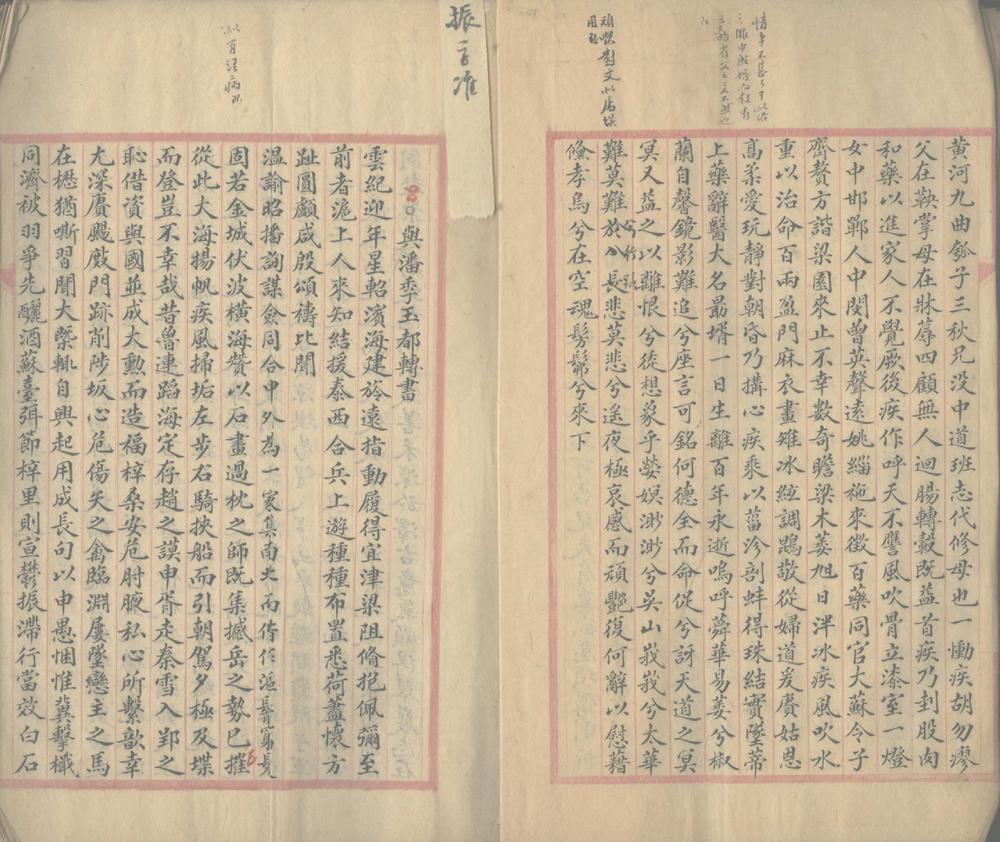 黃河九曲瓠子三秋兄没中道班志代修母也一慟疾胡勿瘳
父在鞅掌母在牀蓐四顧無人迴腸轉轂既益首疾乃刲股肉
和藥以進家人不覺厥後疾作呼天不讐風吹骨立漆室一燈
女中邯鄲人中閔曾英聲遠姚緇袘來徵百藥同官大蘇令子
齊贅方諧梁園來止不幸數奇瞻梁木萎旭日泮冰疾風吹水
重以治命百兩盈門麻衣畫雉冰絃調鵾敬從婦道爰賡姑恩
高柔愛玩靜對朝昏乃搆心疾乘以菑沴剖蚌得珠結實墜蒂
上藥辭醫大名最壻一日生離百年永逝嗚呼蕣華易萎兮椒
蘭自馨鏡影難追兮座言可銘何德全而命促兮訝天道之冥
冥又益之以離恨兮徒想象乎嫈嫇渺渺兮吳山峩峩兮太華
難莫難於兮行路長悲莫悲兮遥夜極哀感而頑艷復何辭以慰藉
儵孝烏兮在空魂髣髴兮來下
頑艷對文似屬誤
用
振言准
與潘季玉都轉書
雲紀迎年星軺濱海建於遠指動履得宜津梁阻脩抱佩彌至
前者滬上人來知結援泰西合兵上游種種布置悉荷藎懷方
趾圓顱咸殷頌禱比聞
温諭昭播詢謀僉同合中外為一家集南北而偕作漚鬌寫髡
固若金城伏波橫海贊以石畫過枕之師既集撼岳之勢已摧
從此大海揚帆疾風掃垢左步右騎挾船而引朝駕夕極及堞
而登豈不幸哉昔魯連蹈海定存趙之謨申胥走秦雪入郢之
恥借資與國並成大勳而造福梓桑安危肘腋私心所繫歆幸
尢深賡颺戲門跡削陟坂心危傷矢之禽臨淵屢墜戀主之馬
在櫪猶嘶習聞大槩輒自興起用成長句以申愚悃惟冀擊檝
同濟被羽爭先釃酒蘇臺弭節梓里則宣鬱振滯行當效白石